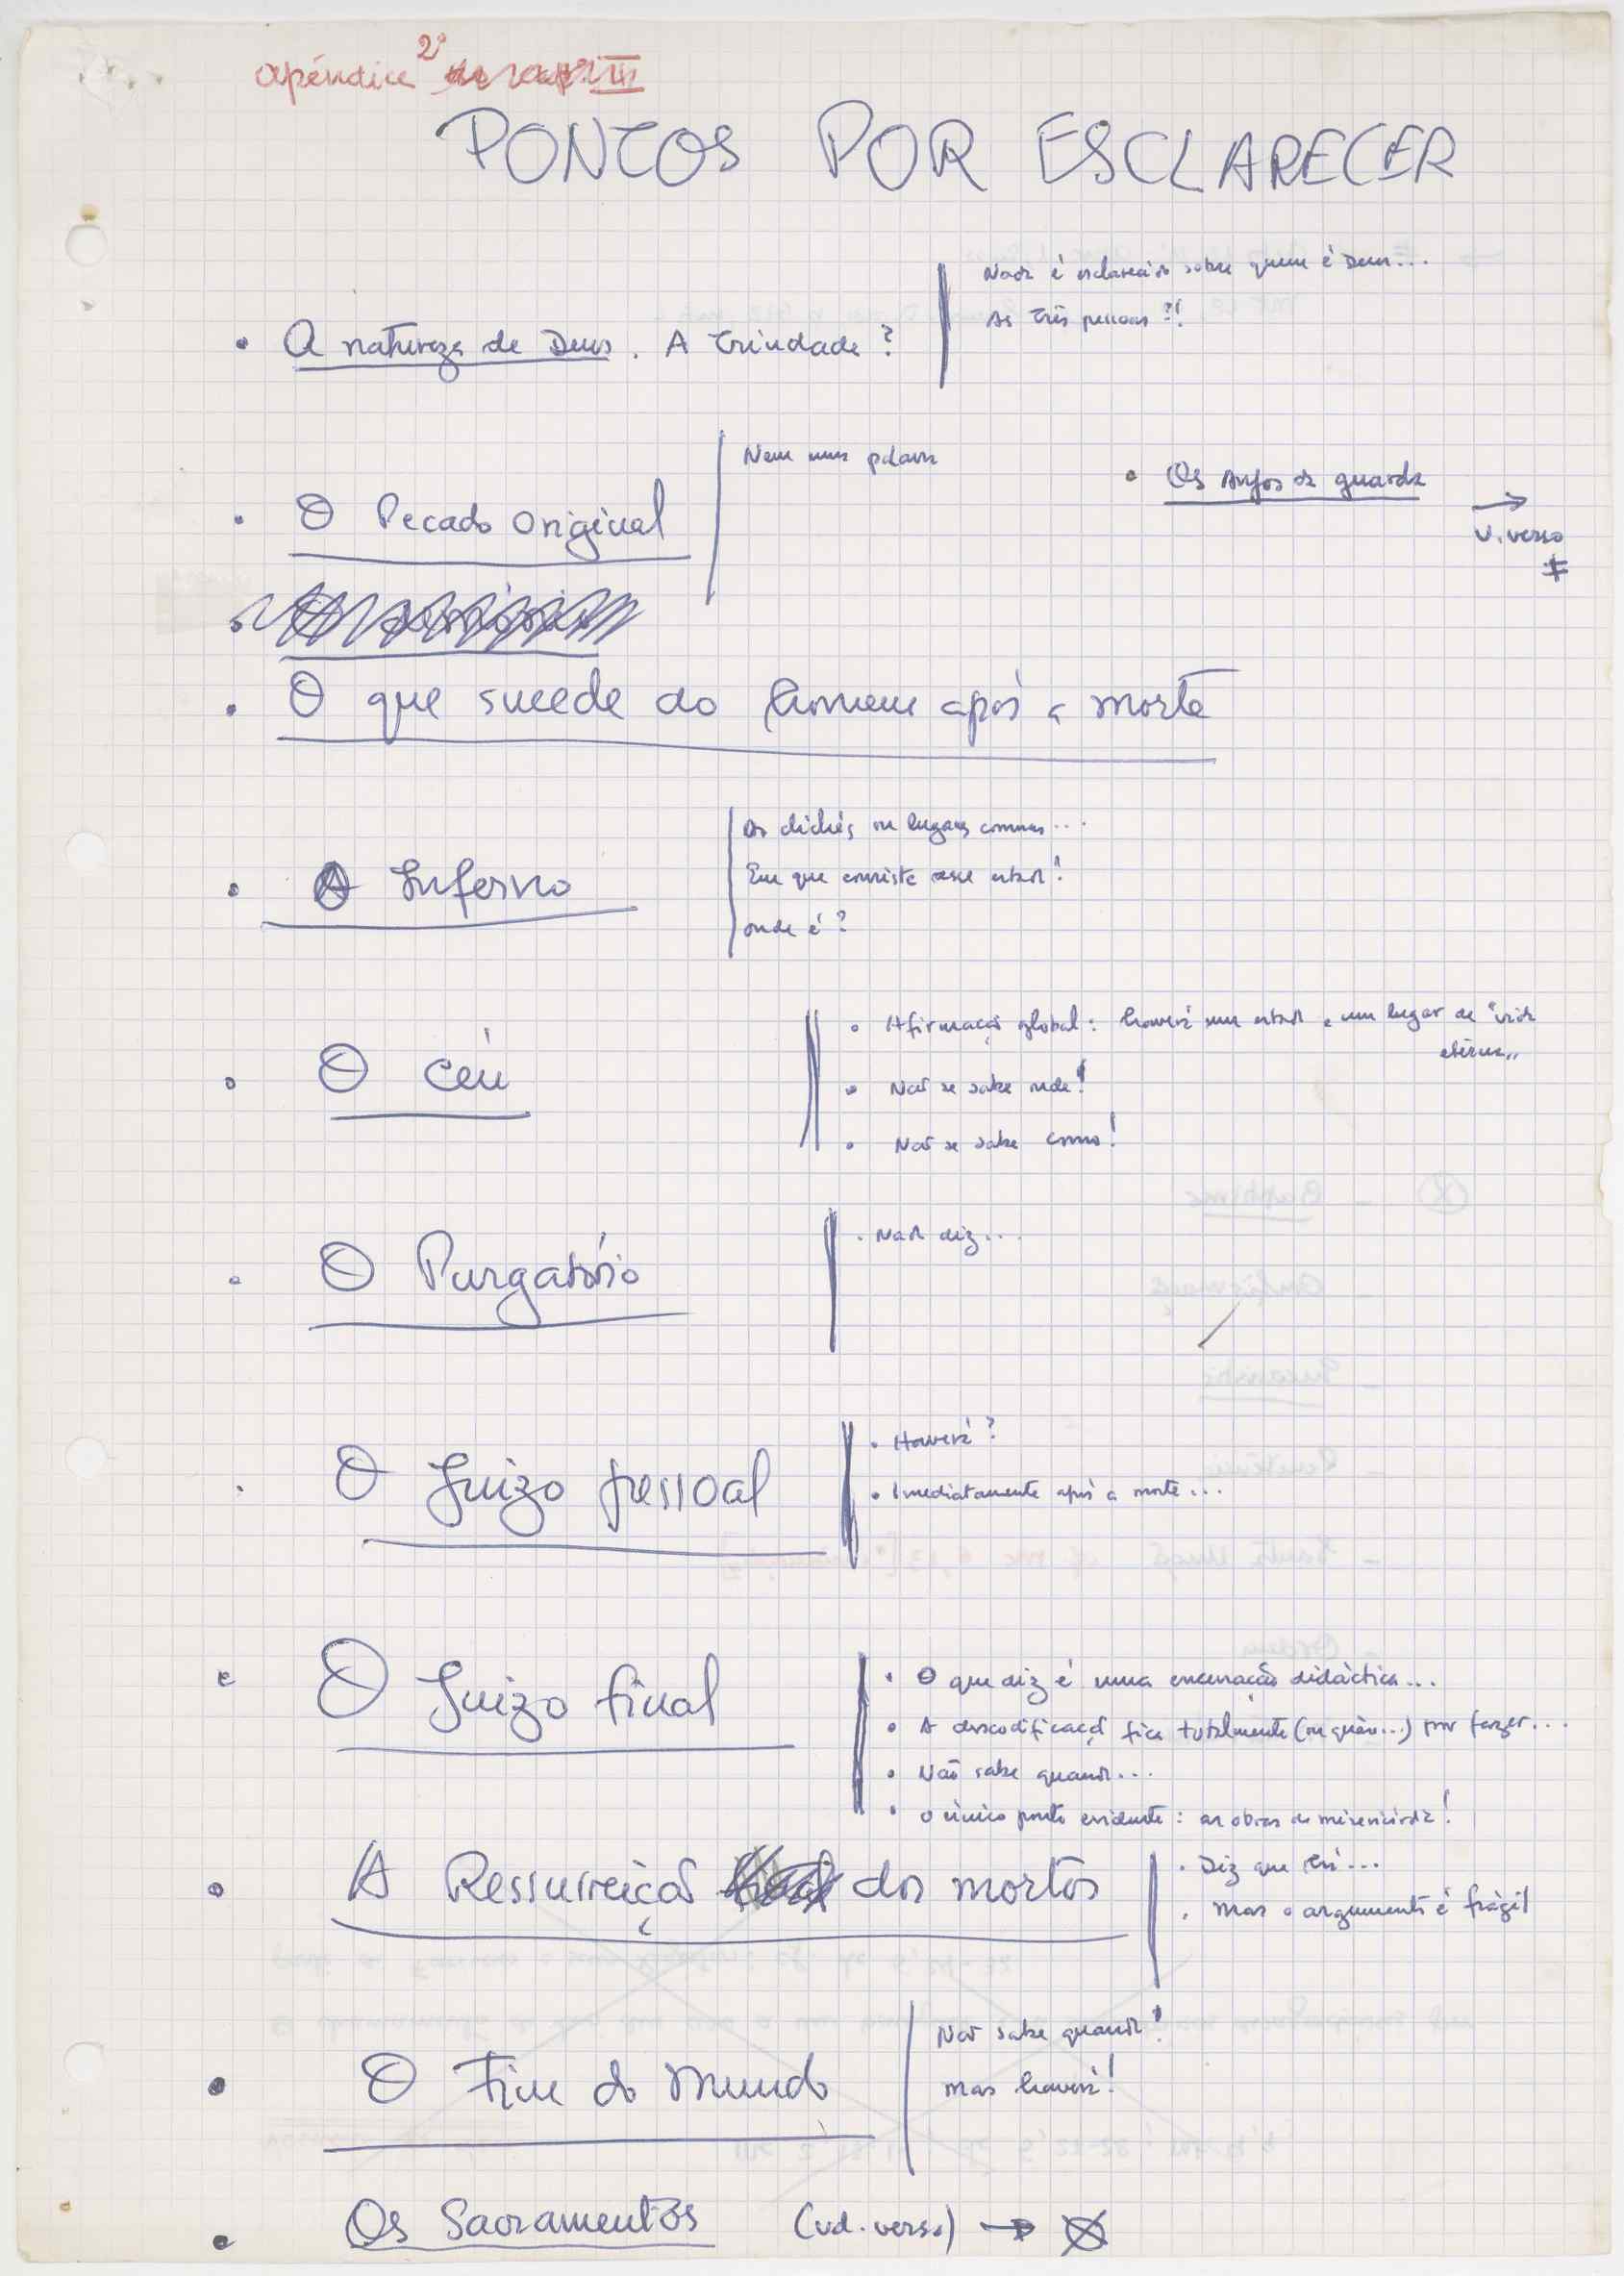 apêndice 2º
PONTOS POR ESCLARECER
• A natureza de Deus. A Trindade?
Nada é esclarecido sobre quem é Deus...
As Três pessoas?!
• O Pecado original
Nem uma palavra
• Os Anjos da guarda
→
v. verso
• O que sucede ao homem após a morte
• O Inferno
Os clichés ou lugares comuns...
Em que consiste esse estado!
onde é?
• O céu
• Afirmação global: haverá um estado e um lugar de "vida
eterna"
• Não se sabe onde!
• Não se sabe como!
• O Purgatório
• Nada diz...
• O Juizo pessoal
• Haverá?
• Imediatamente após a morte...
• O Juizo final
• O que diz é uma encenação didáctica...
• A descodificação fica totalmente (ou quase...) por fazer...
• Não sabe quando...
• O único ponto evidente: as obras de misericórdia!
• A Ressurreição dos mortos
• Diz que há...
• Mas o argumento é frágil
• O Fim do Mundo
Não sabe quando!
mas haverá!
• Os Sacramentos (vd. verso) →